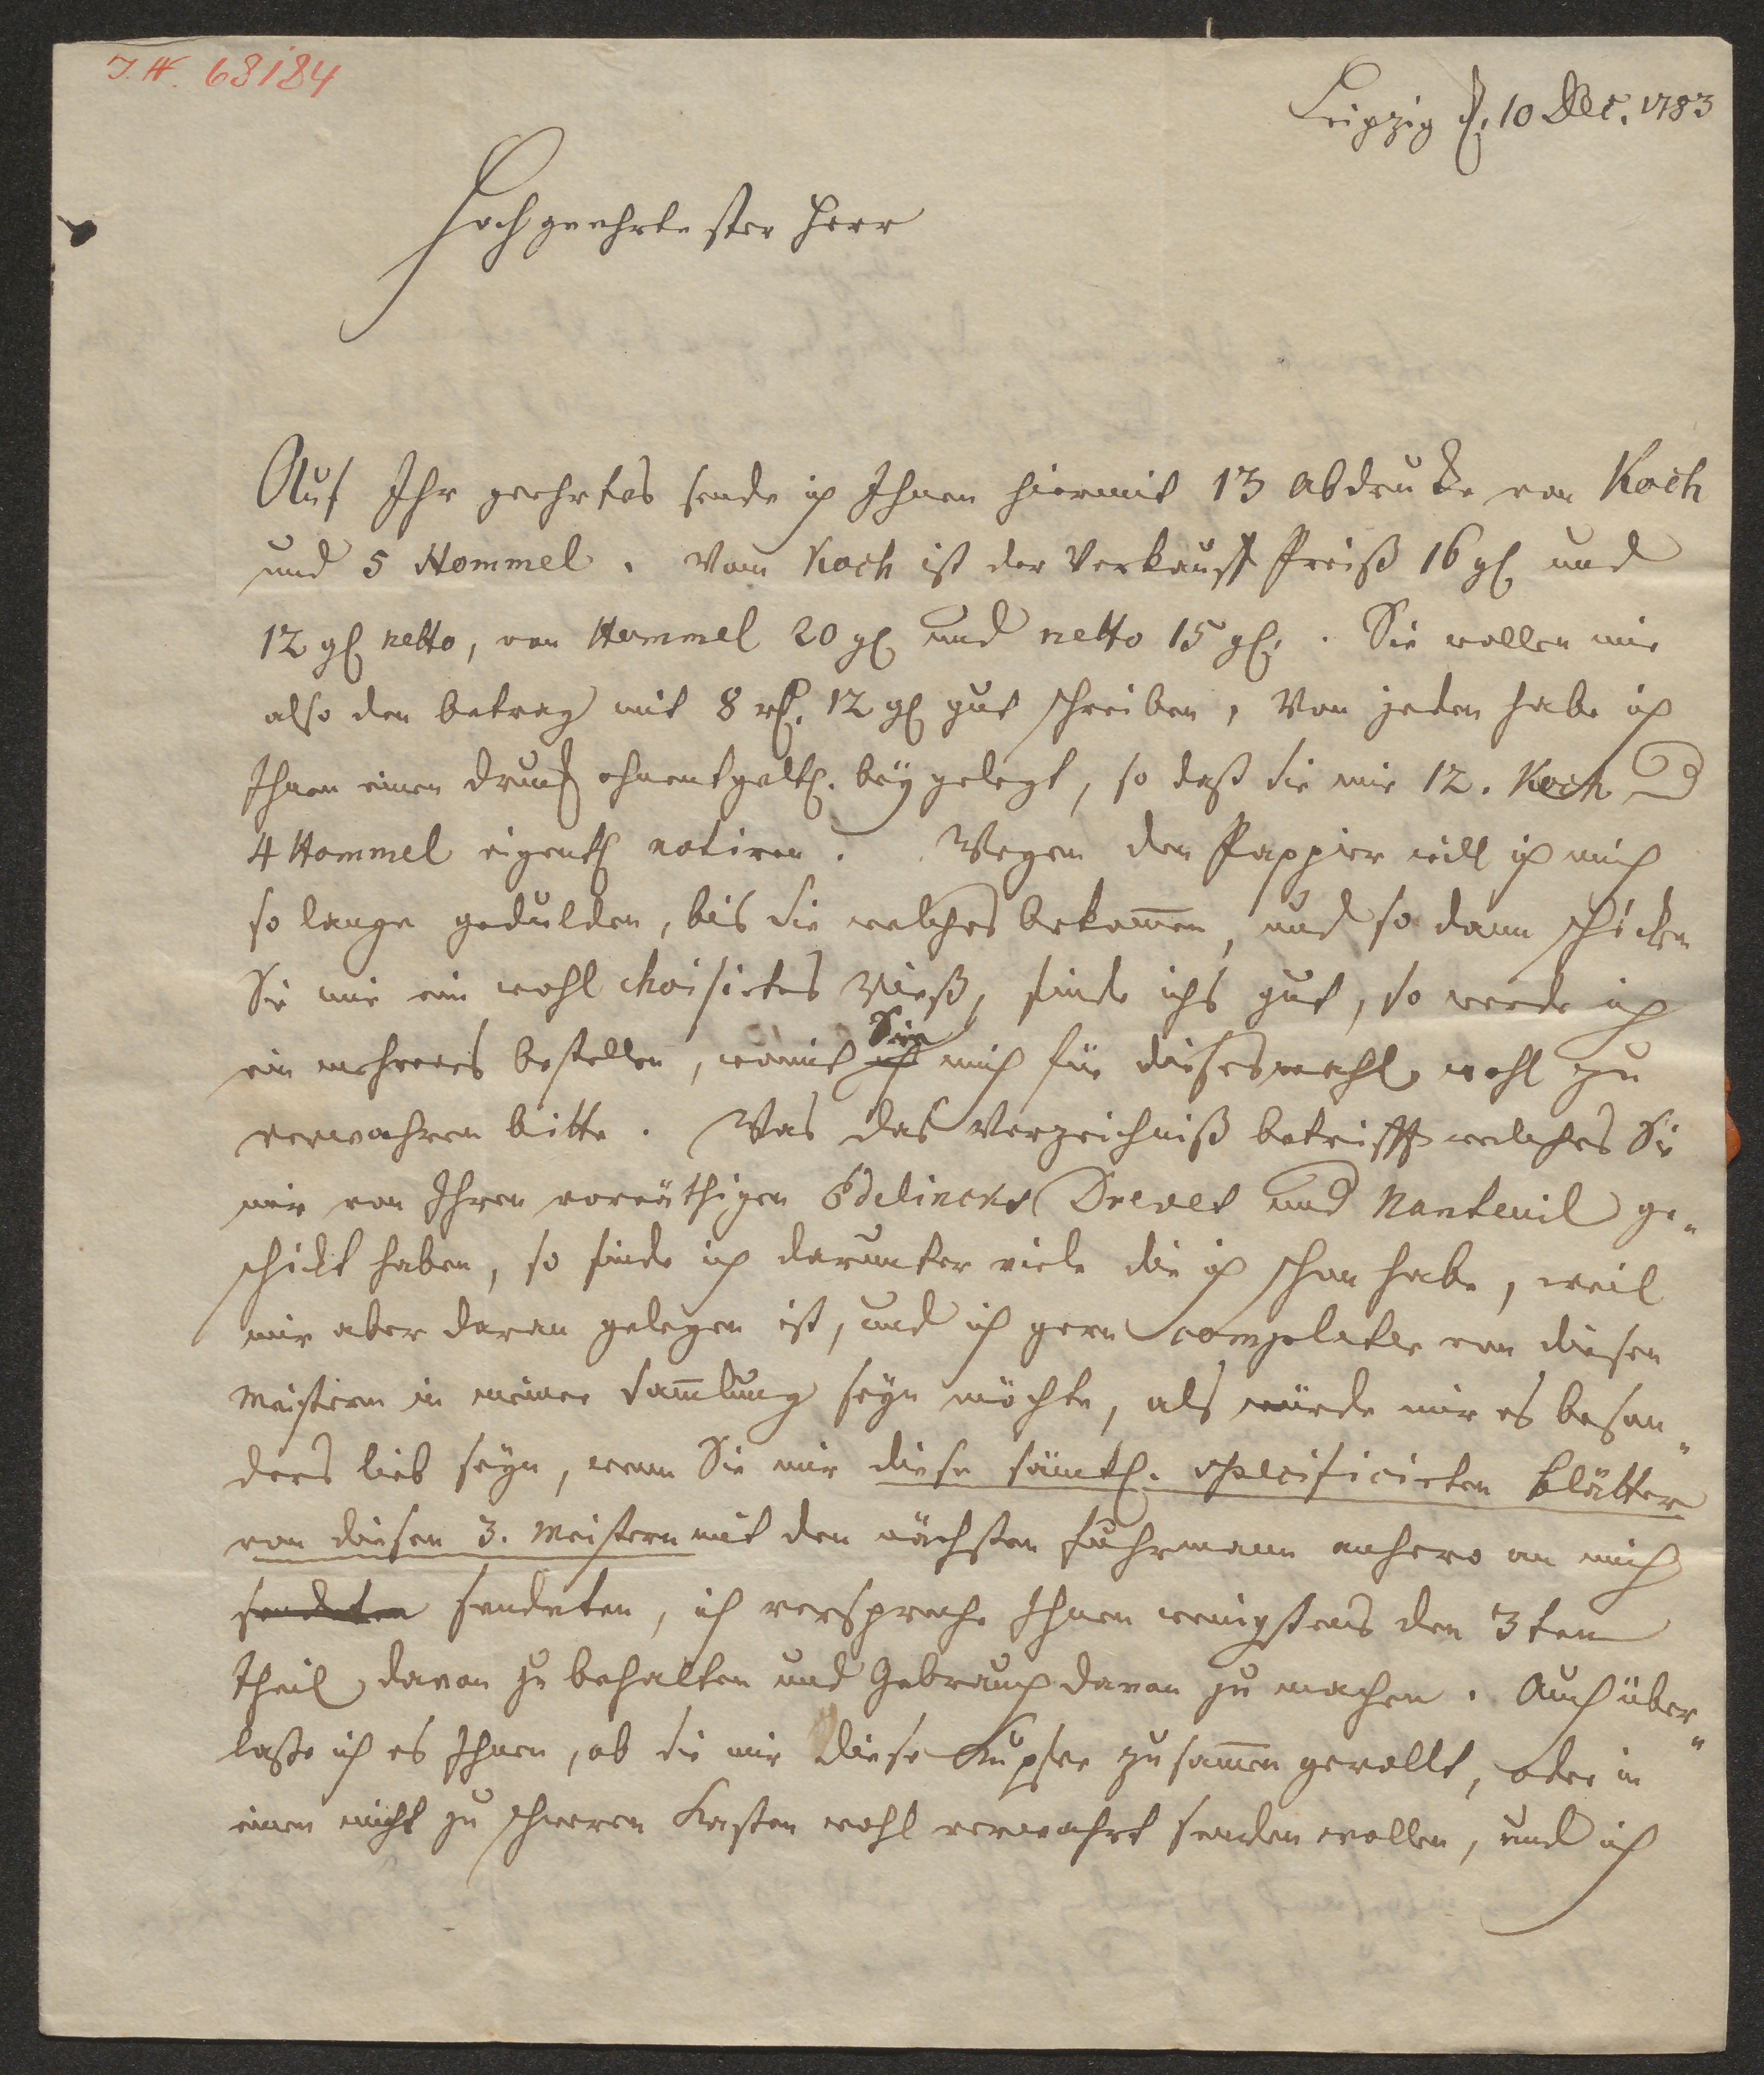 J.N. 63184
Leipzig d. 10 Dec. 1783
Hochgeehrtester Herr
Auf Ihr geehrtes sende ich Ihnen hiermit 13 Abdrucke von Koch
und 5 Hommel. Vom Koch ist der Verkauff Preiß 16 gl und
12 gl netto, von Hommel 20 gl und netto 15 gl. Sie wollen mir
also den betrag mit 8 rl. 12 gl gut schreiben, Von jeden habe ich
Ihnen einen Druck ohnentgeltl. beygelegt, so daß sie mir 12. Koch u
4 Hommel eigentl notiren. Wegen den Pappier will ich mich
so lange gedulden, bis sie welches bekom̅en, und so dann schicken
Sie mir ein wohl choisirtes Rieß, finde ichs gut, so werde ich
ein mehreres bestellen, womit ich Sie mich für diesesmahl wohl zu
verwahren bitte. Was das Verzeichniß betrifft welches Sie
mir von Ihren vorräthigen Edelinckt Drevet und Nanteuil ge„
schickt haben, so finde ich darunter viele die ich schon habe, weil
mir aber daran gelegen ist, und ich gern complette von diesen
Meistern in meiner Sam̅lung seyn möchte, als würde mir es beson„
ders lieb seyn, wenn Sie mir diese sämtl. specificirten blätter
von diesen 3. Meistern mit den nächsten Fuhrmann anhero an mich
sendeten sendeten, ich verspreche Ihnen wenigstens den 3ten
Theil davon zu behalten und Gebrauch davon zu machen. Auch über„
laße ich es Ihnen, ob sie mir diese Kupfer zusam̅en gerollt, oder in
einen nicht zu schweren Kasten wohl verwahrt senden wollen, und ich